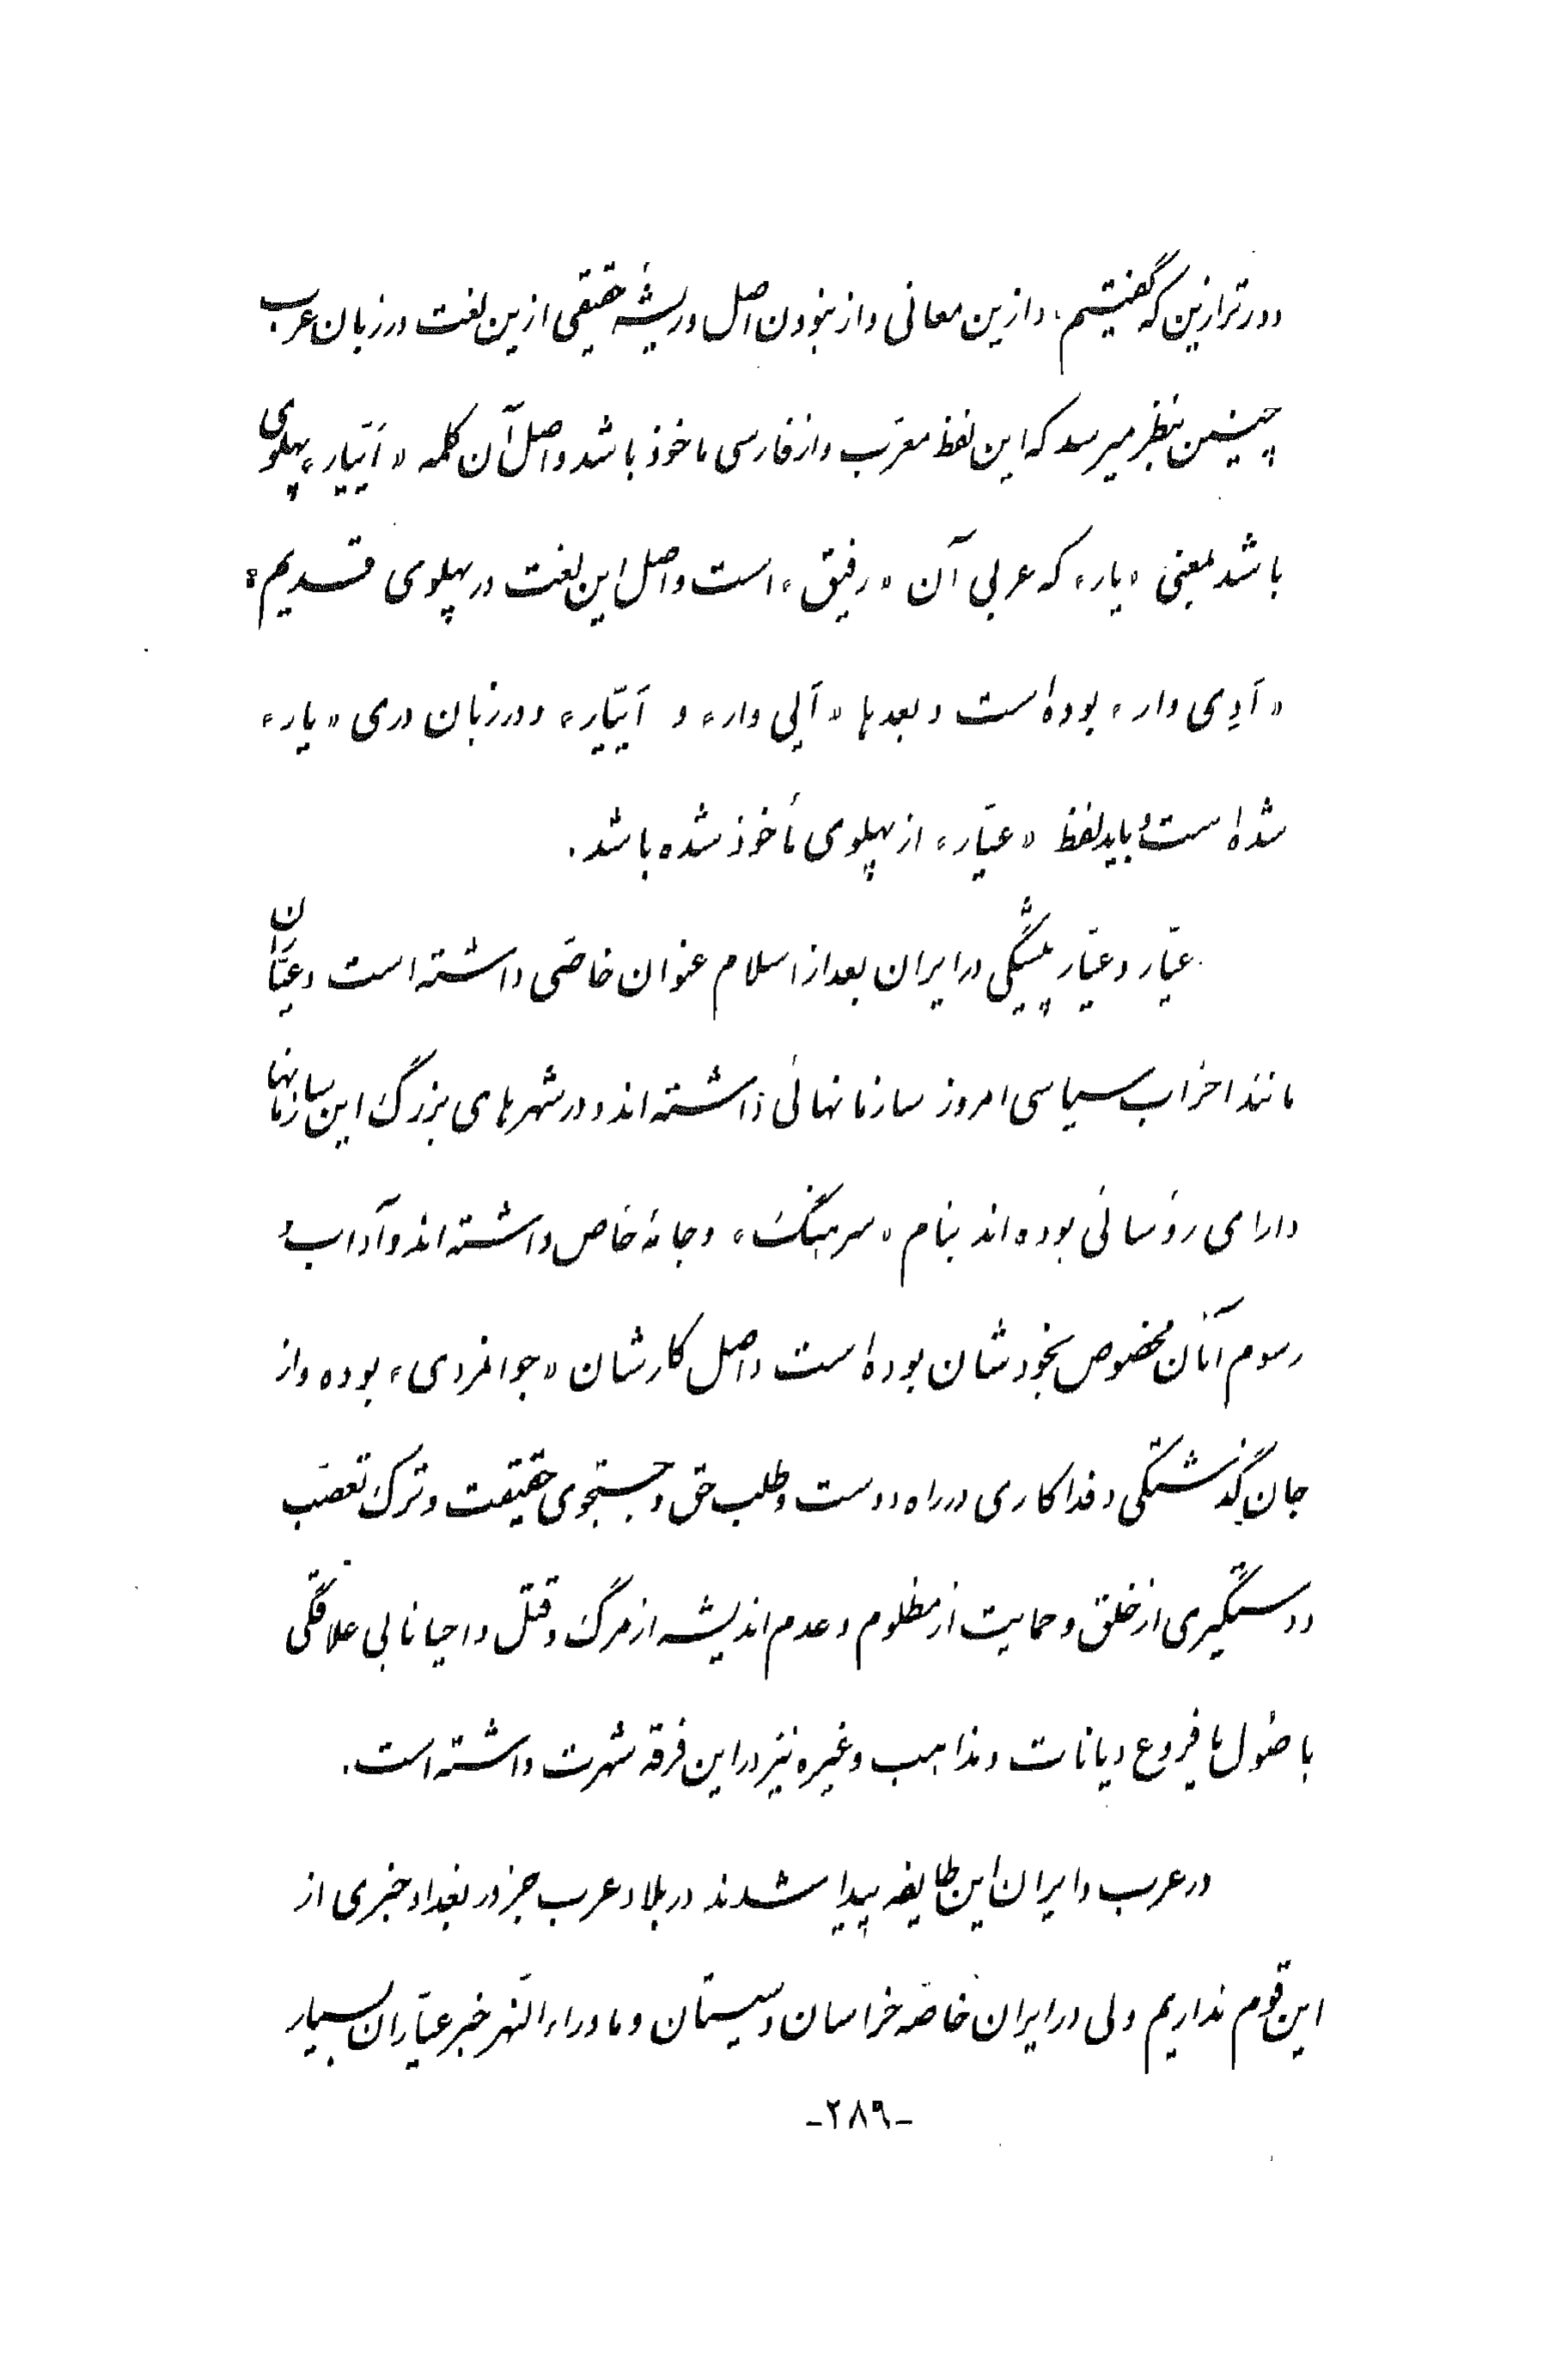 و دورتر ازین که گفتیم، و ازین معانی و از نبودن اصل و ریشهٔ حقیقی ازین لغت در زبان عرب
چنین بنظر میرسد که این لفظ معرّب و از فارسی ماخوذ باشد و اصل آن کلمه «اَیّیار» پهلوی
باشد بمعنی «یار» که عربی آن «رفیق» است و اصل این لغت در پهلوی قدیم:
«اَدِی وار» بوده است و بعدها «اَیی وار» و اَییّار» و در زبان دری «یار»
شده است و باید لفظ «عیّار» از پهلوی مأخوذ شده باشد.
عیّار و عیّار پیشگی در ایران بعد از اسلام عنوان خاصّی داشته است و عیّاران
مانند احزاب سیاسی امروز سازمانهائی داشته اند و در شهرهای بزرگ این سازمانها
دارای رؤسائی بوده اند بنام «سرهنگ» و جامهٔ خاص داشته اند و آداب و
رسوم آنان مخصوص بخودشان بوده است و اصل کارشان «جوانمردی» بوده و از
جان گذشتگی و فداکاری در راه دوست و طلب حق و جستجوی حقیقت و ترک تعصّب
و دستگیری از خلق و حمایت از مظلوم و عدم اندیشه از مرگ و قتل و احیانا بی علاقگی
باصُول یا فروع دیانات و مذاهب و غیره نیز در این فرقه شهرت داشته است.
در عرب و ایران این طایفه پیدا شدند در بلاد عرب جز در بغداد خبری از
این قوم نداریم ولی در ایران خاصّه خراسان و سیستان و ماوراءالنّهر خبر عیّاران بسیار
-۲۸۹-